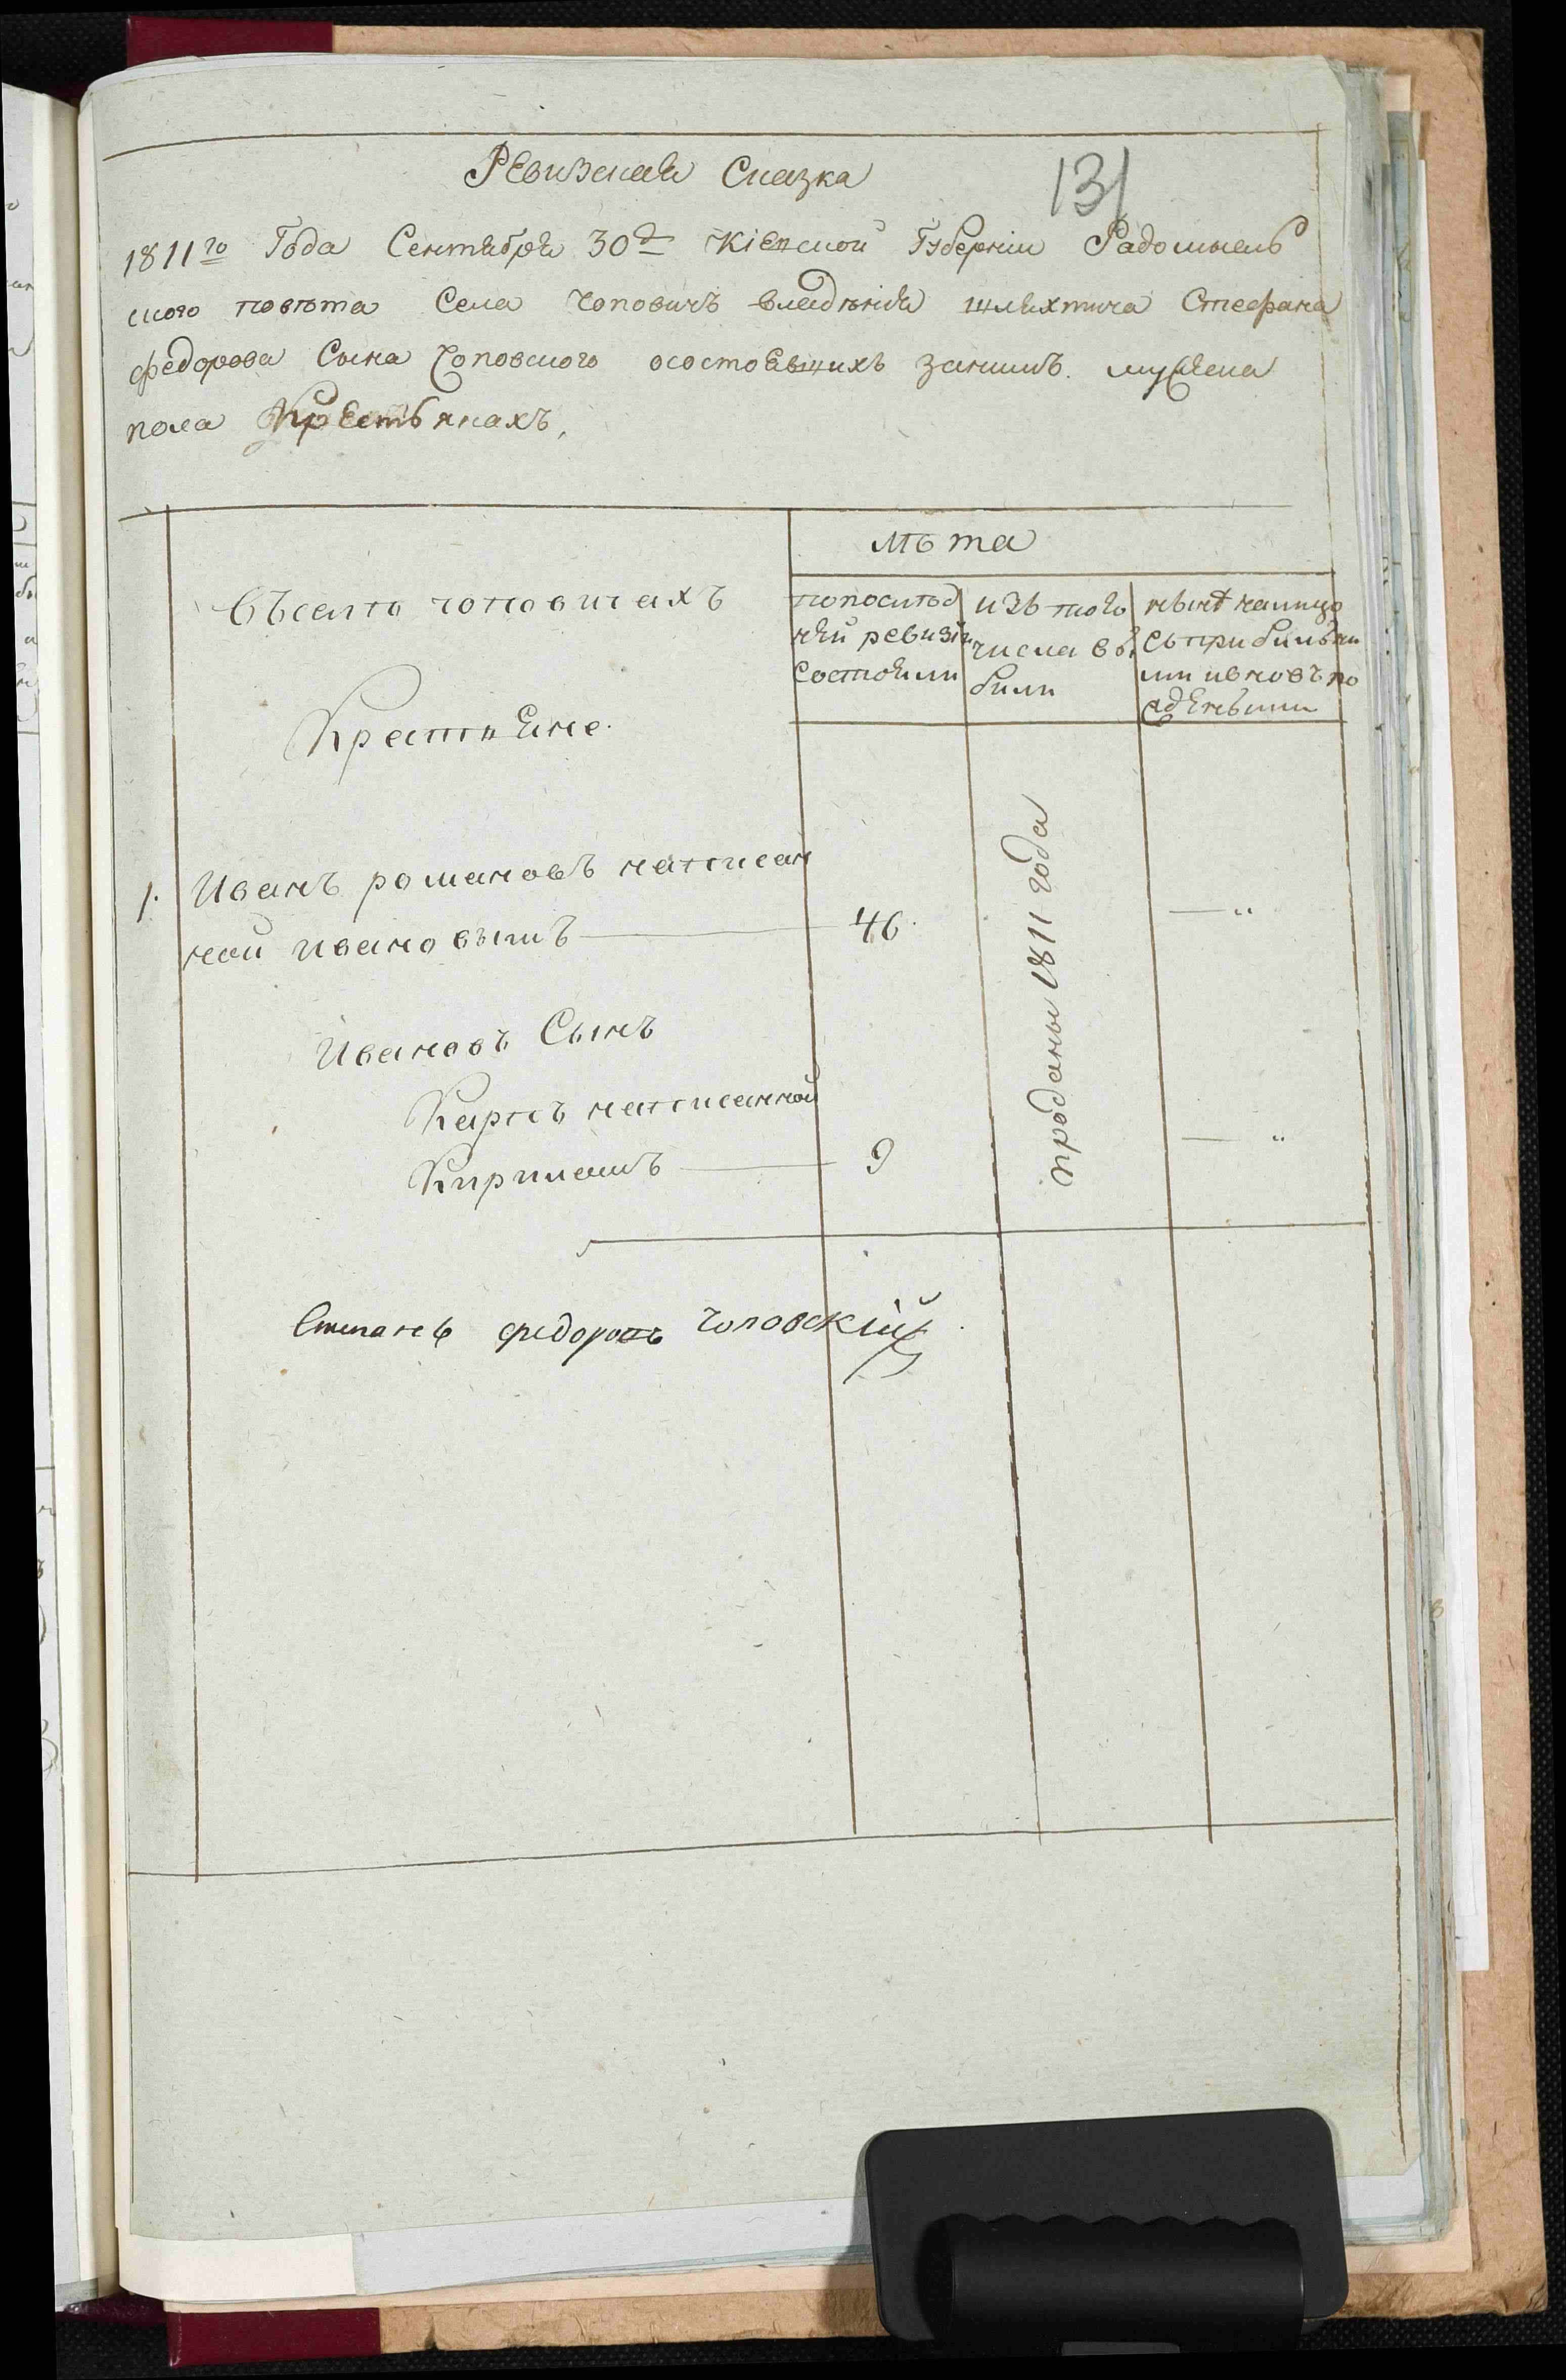 Ревизская Сказка
131
1811го Года Сентября 30д Кіевской Губерніи Радомысль
ского повѣта Села Чоповичъ владѣнія шляхтича Стефана
федорова Сына Чоповского осостоявшихъ занимъ мужеска
пола Крестьянахъ,
лѣта
въселѣ чоповичахъ
Крестьяне.
попослѣд
ней ревизіи
состояли
изъ того
числа вы
были
нынѣ налицо
съприбылы
ми ивновь по
1. Иванъ романовъ написан
ной ивановымъ 46.
Ивановъ Сынъ
Карпъ написанной
Кириломъ 9
проданы 1811 года
Степанъ федоровъ Чоповскій